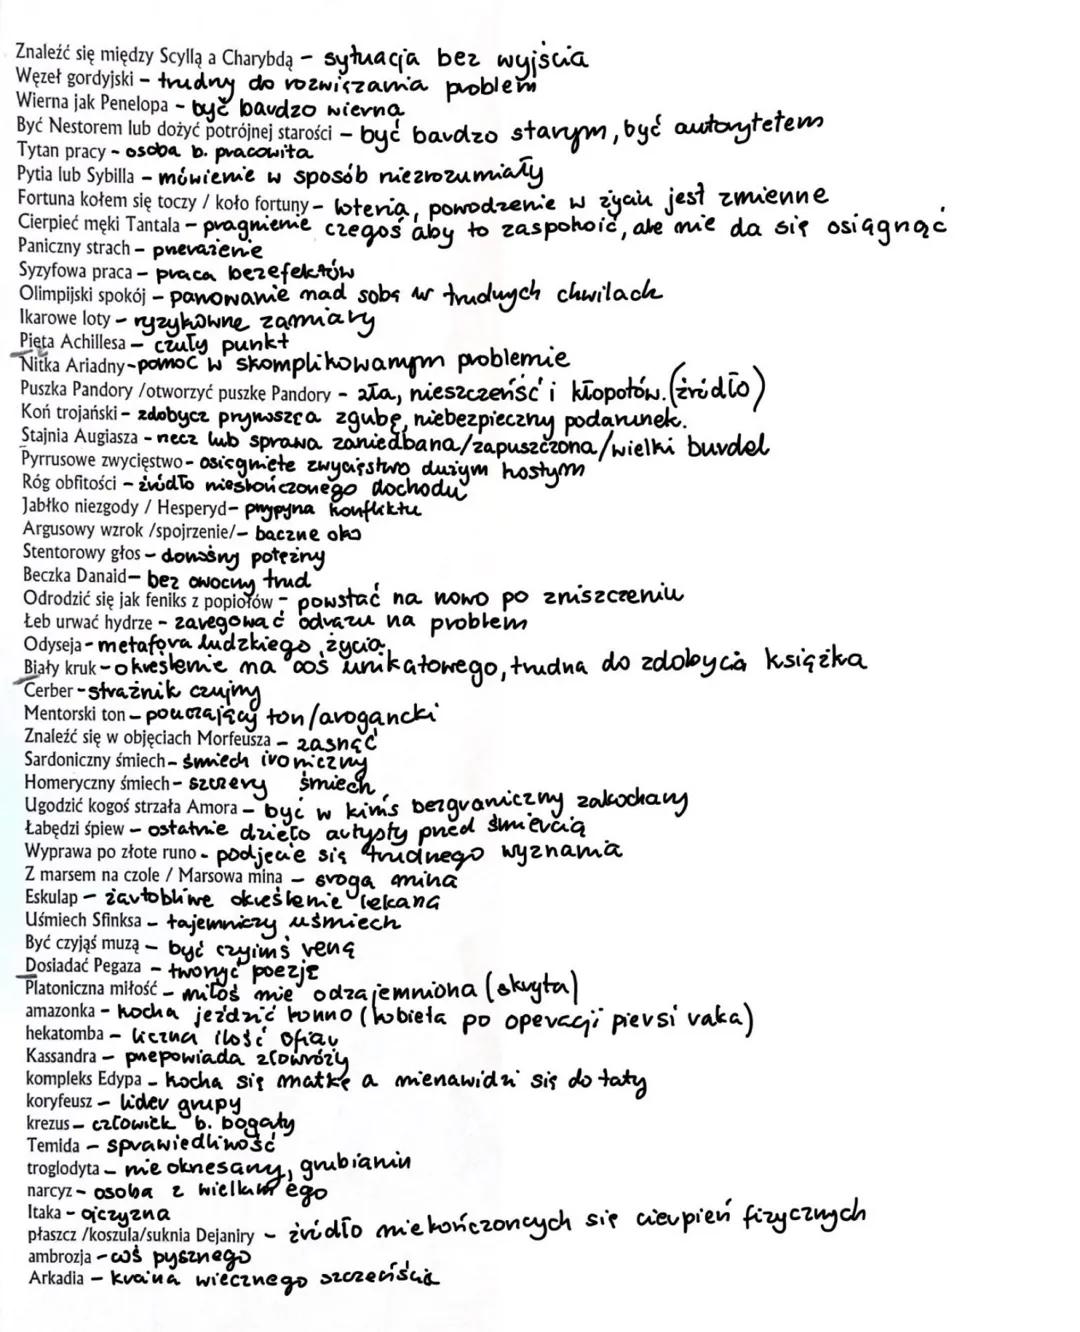 Znaleźć się między Scyllą a Charybdą – sytuacja bez wyjścia
Węzeł gordyjski – trudny do rozwiązania problem
Wierna jak Penelopa – być bardzo wierną
Być Nestorem lub dożyć potrójnej starości – być bardzo starym, być autorytetem
Tytan pracy – osoba b. pracowita
Pytia lub Sybilla – mówienie w sposób niezrozumiały
Fortuna kołem się toczy / koło fortuny – loteria, powodzenie w życiu jest zmienne
Cierpieć męki Tantala – pragnienie czegoś aby to zaspokoić, ale nie da się osiągnąć
Paniczny strach – przerażenie
Syzyfowa praca – praca bez efektów
Olimpijski spokój – panowanie nad sobą w trudnych chwilach
Ikarowe loty – ryzykowne zamiary
Pięta Achillesa – czuły punkt
Nitka Ariadny – pomoc w skomplikowanym problemie
Puszka Pandory /otworzyć puszkę Pandory – zła, nieszczęść i kłopotów. (źródło)
Koń trojański – zdobycz przynosząca zgubę, niebezpieczny podarunek.
Stajnia Augiasza – rzecz lub sprawa zaniedbana/zapuszczona/wielki burdel
Pyrrusowe zwycięstwo – osiągnięte zwycięstwo dużym kosztym
Róg obfitości – źródło nieskończonego dochodu
Jabłko niezgody / Hesperyd – przyczyna konfliktu
Argusowy wzrok /spojrzenie/ – baczne oko
Stentorowy głos – donośny potężny
Beczka Danaid – bez owocny trud
Odrodzić się jak feniks z popiołów – powstać na nowo po zniszczeniu
Łeb urwać hydrze – zareagować odrazu na problem
Odyseja – metafora ludzkiego życia
Biały kruk – określenie na coś unikatowego, trudna do zdobycia książka
Cerber – strażnik czujny
Mentorski ton – pouczający ton/arogancki
Znaleźć się w objęciach Morfeusza – zasnąć
Sardoniczny śmiech – śmiech ironiczny
Homeryczny śmiech – szczery śmiech
Ugodzić kogoś strzała Amora – być w kimś bezgraniczny zakochany
Łabędzi śpiew – ostatnie dzieło artysty przed śmiercią
Wyprawa po złote runo – podjęcie się trudnego wyznania
Z marsem na czole / Marsowa mina – sroga mina
Eskulap – żartobliwe określenie lekarza
Uśmiech Sfinksa – tajemniczy uśmiech
Być czyjąś muzą – być czyimś veną
Dosiadać Pegaza – tworzyć poezję
Platoniczna miłość – miłoś nie odzajemniona (skryta)
amazonka – kocha jeździć konno (kobieta po operacji piersi raka)
hekatomba – liczna ilość ofiar
Kassandra – przepowiada złowróży
kompleks Edypa – kocha się matkę a nienawidzi się do taty
koryfeusz – lider grupy
krezus – człowiek b. bogaty
Temida – sprawiedliwość
troglodyta – nie okrzesany, grubianin
narcyz – osoba z wielkim ego
Itaka – ojczyzna
płaszcz /koszula/suknia Dejaniry – źródło niekończoncych się cierpień fizycznych
ambrozja – coś pysznego
Arkadia – kraina wiecznego szczęścia